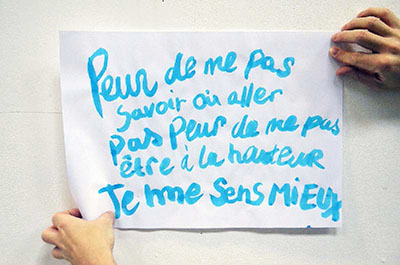 Peur de ne pas
savoir où aller
pas peur de ne pas
être à la hauteur
Je me sens MiEUX